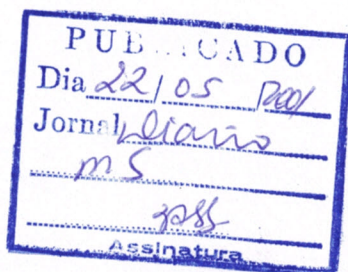 PUB...CADO
Dia 22/05/2001
Jornal Diario
MS
Assinatura